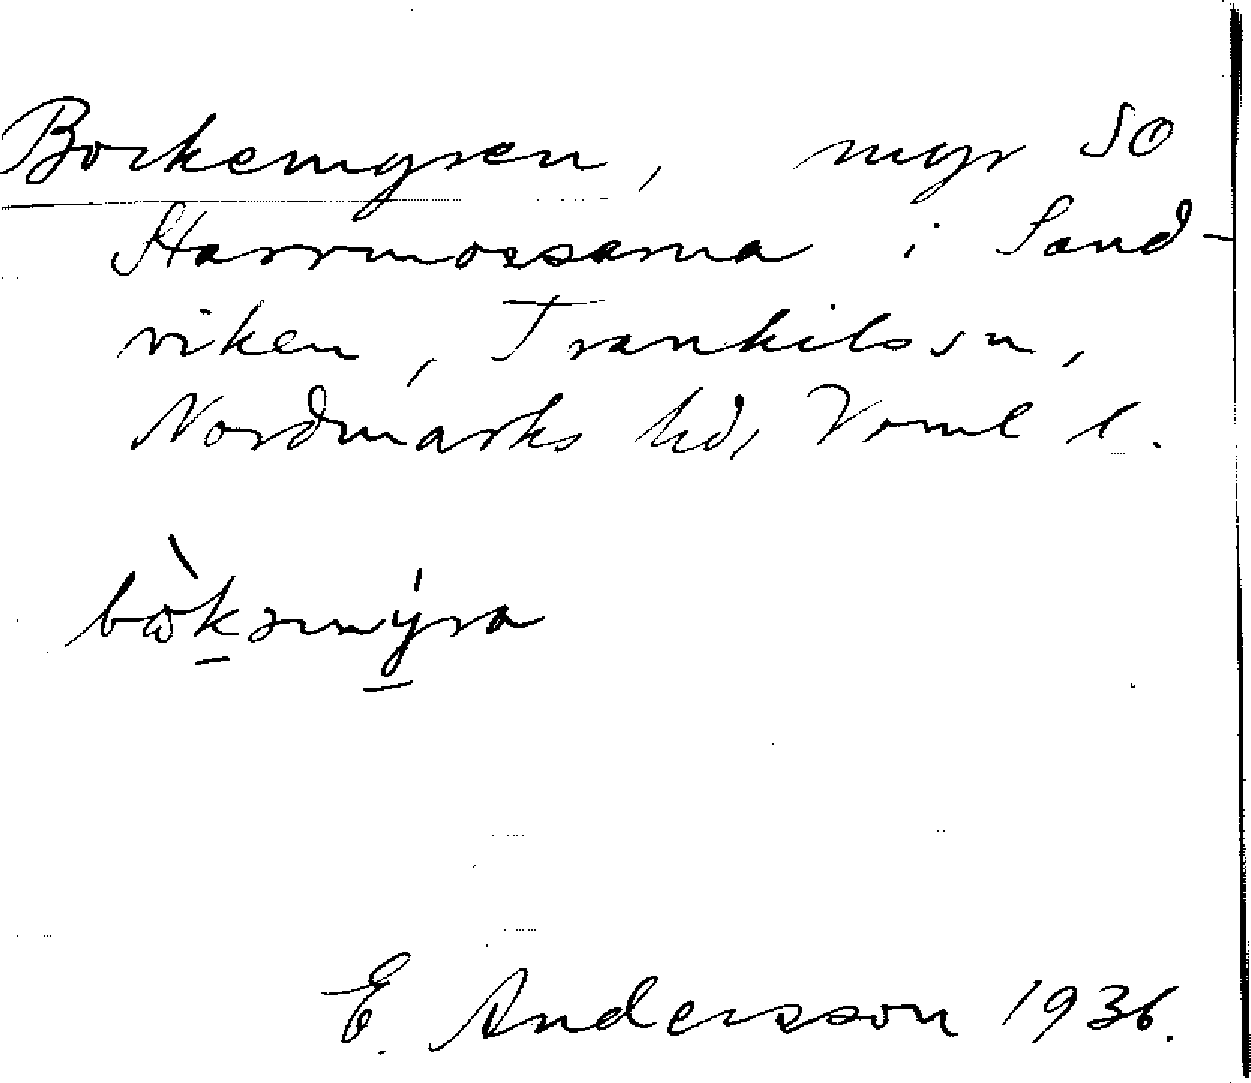 Bockemyren, myr SO
Starrmossarna i Sand-
viken, Trankils sn,
Nordmarks hd, Värml l.
bòkəmýra
E. Andersson 1936.